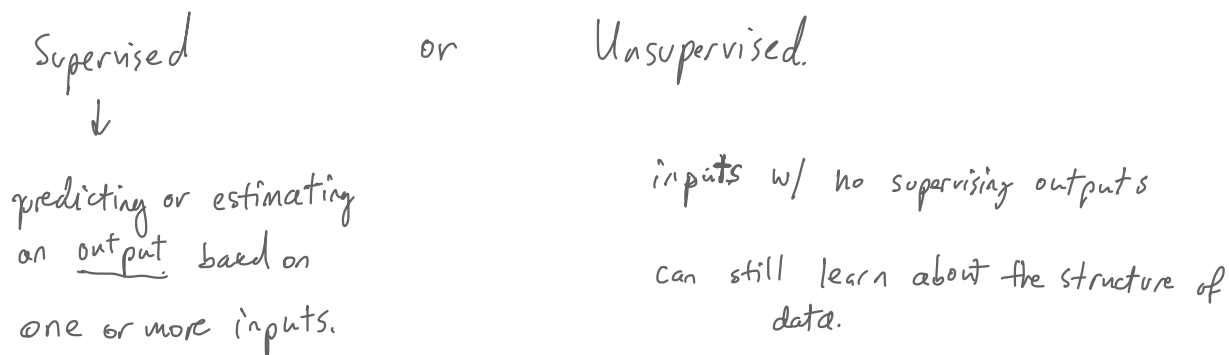 Supervised or Unsupervised.
↓
predicting or estimating
an output based on
one or more inputs.
inputs w/ no supervising outputs
can still learn about the structure of
data.